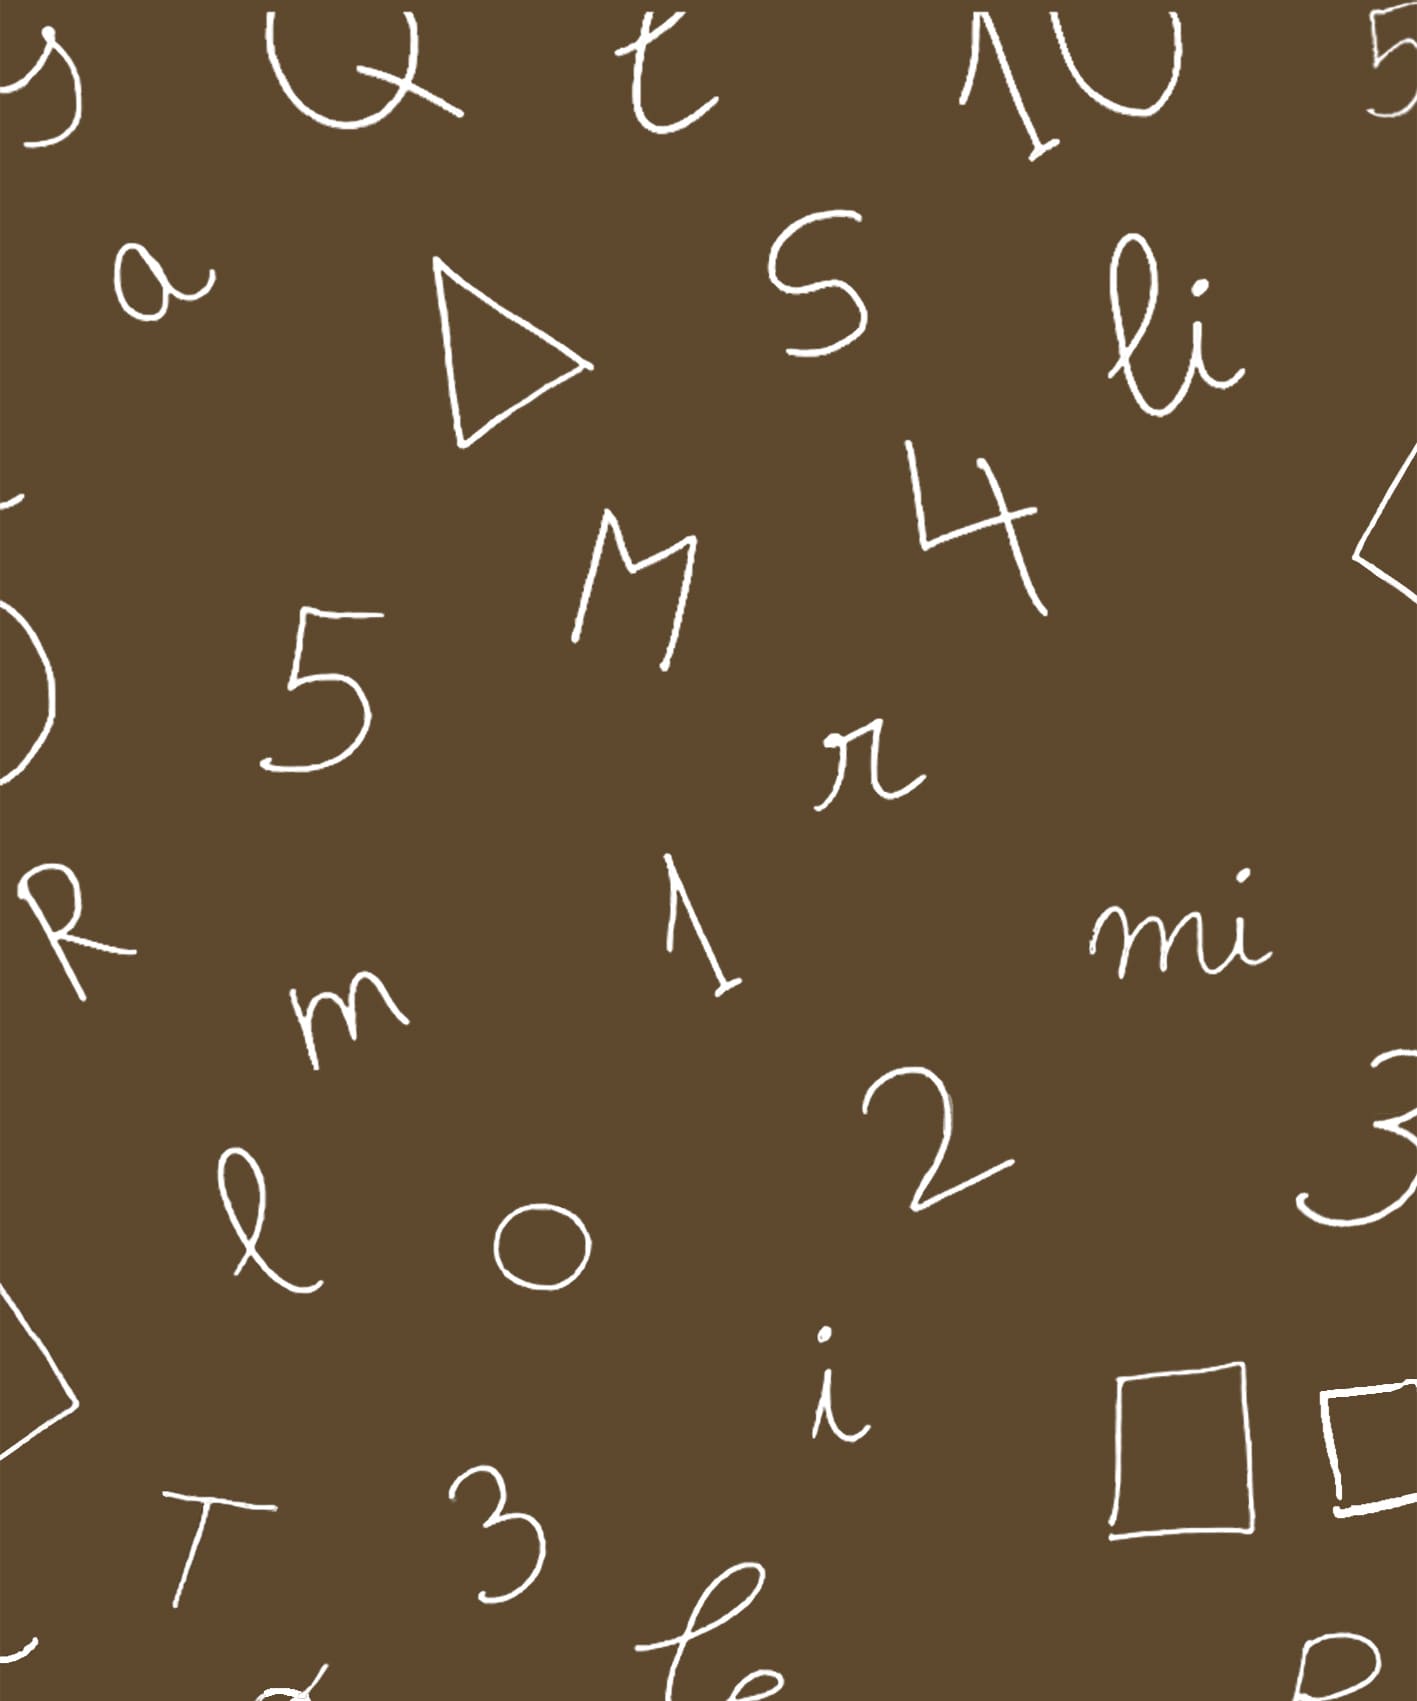 s Q t 10 5
a S li
4
M
5
r
R 1 mi
m
2 3
l o
i
T 3
le